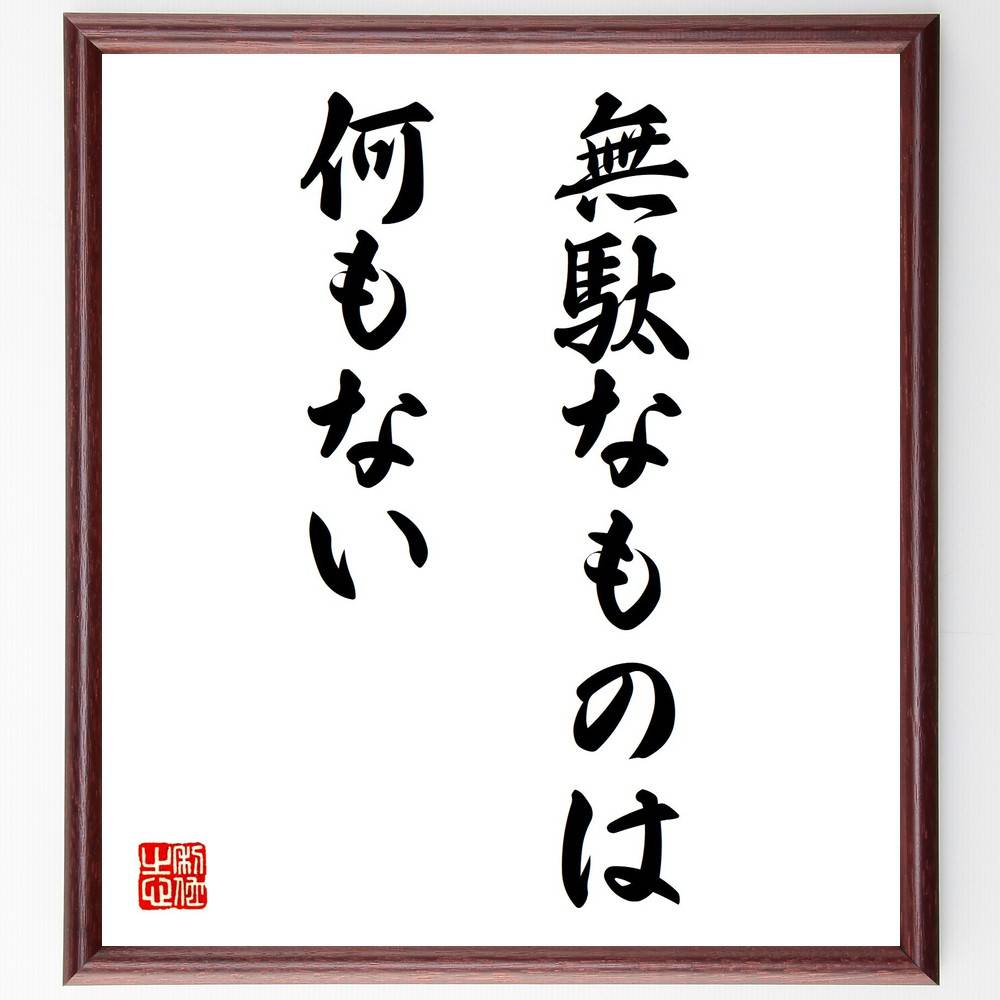 無駄なものは
何もない